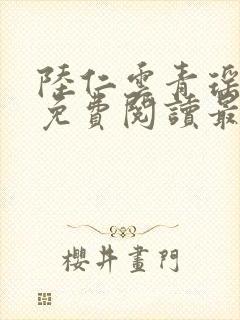 陸仁雲青瑶
免費閱讀最
櫻井畫門